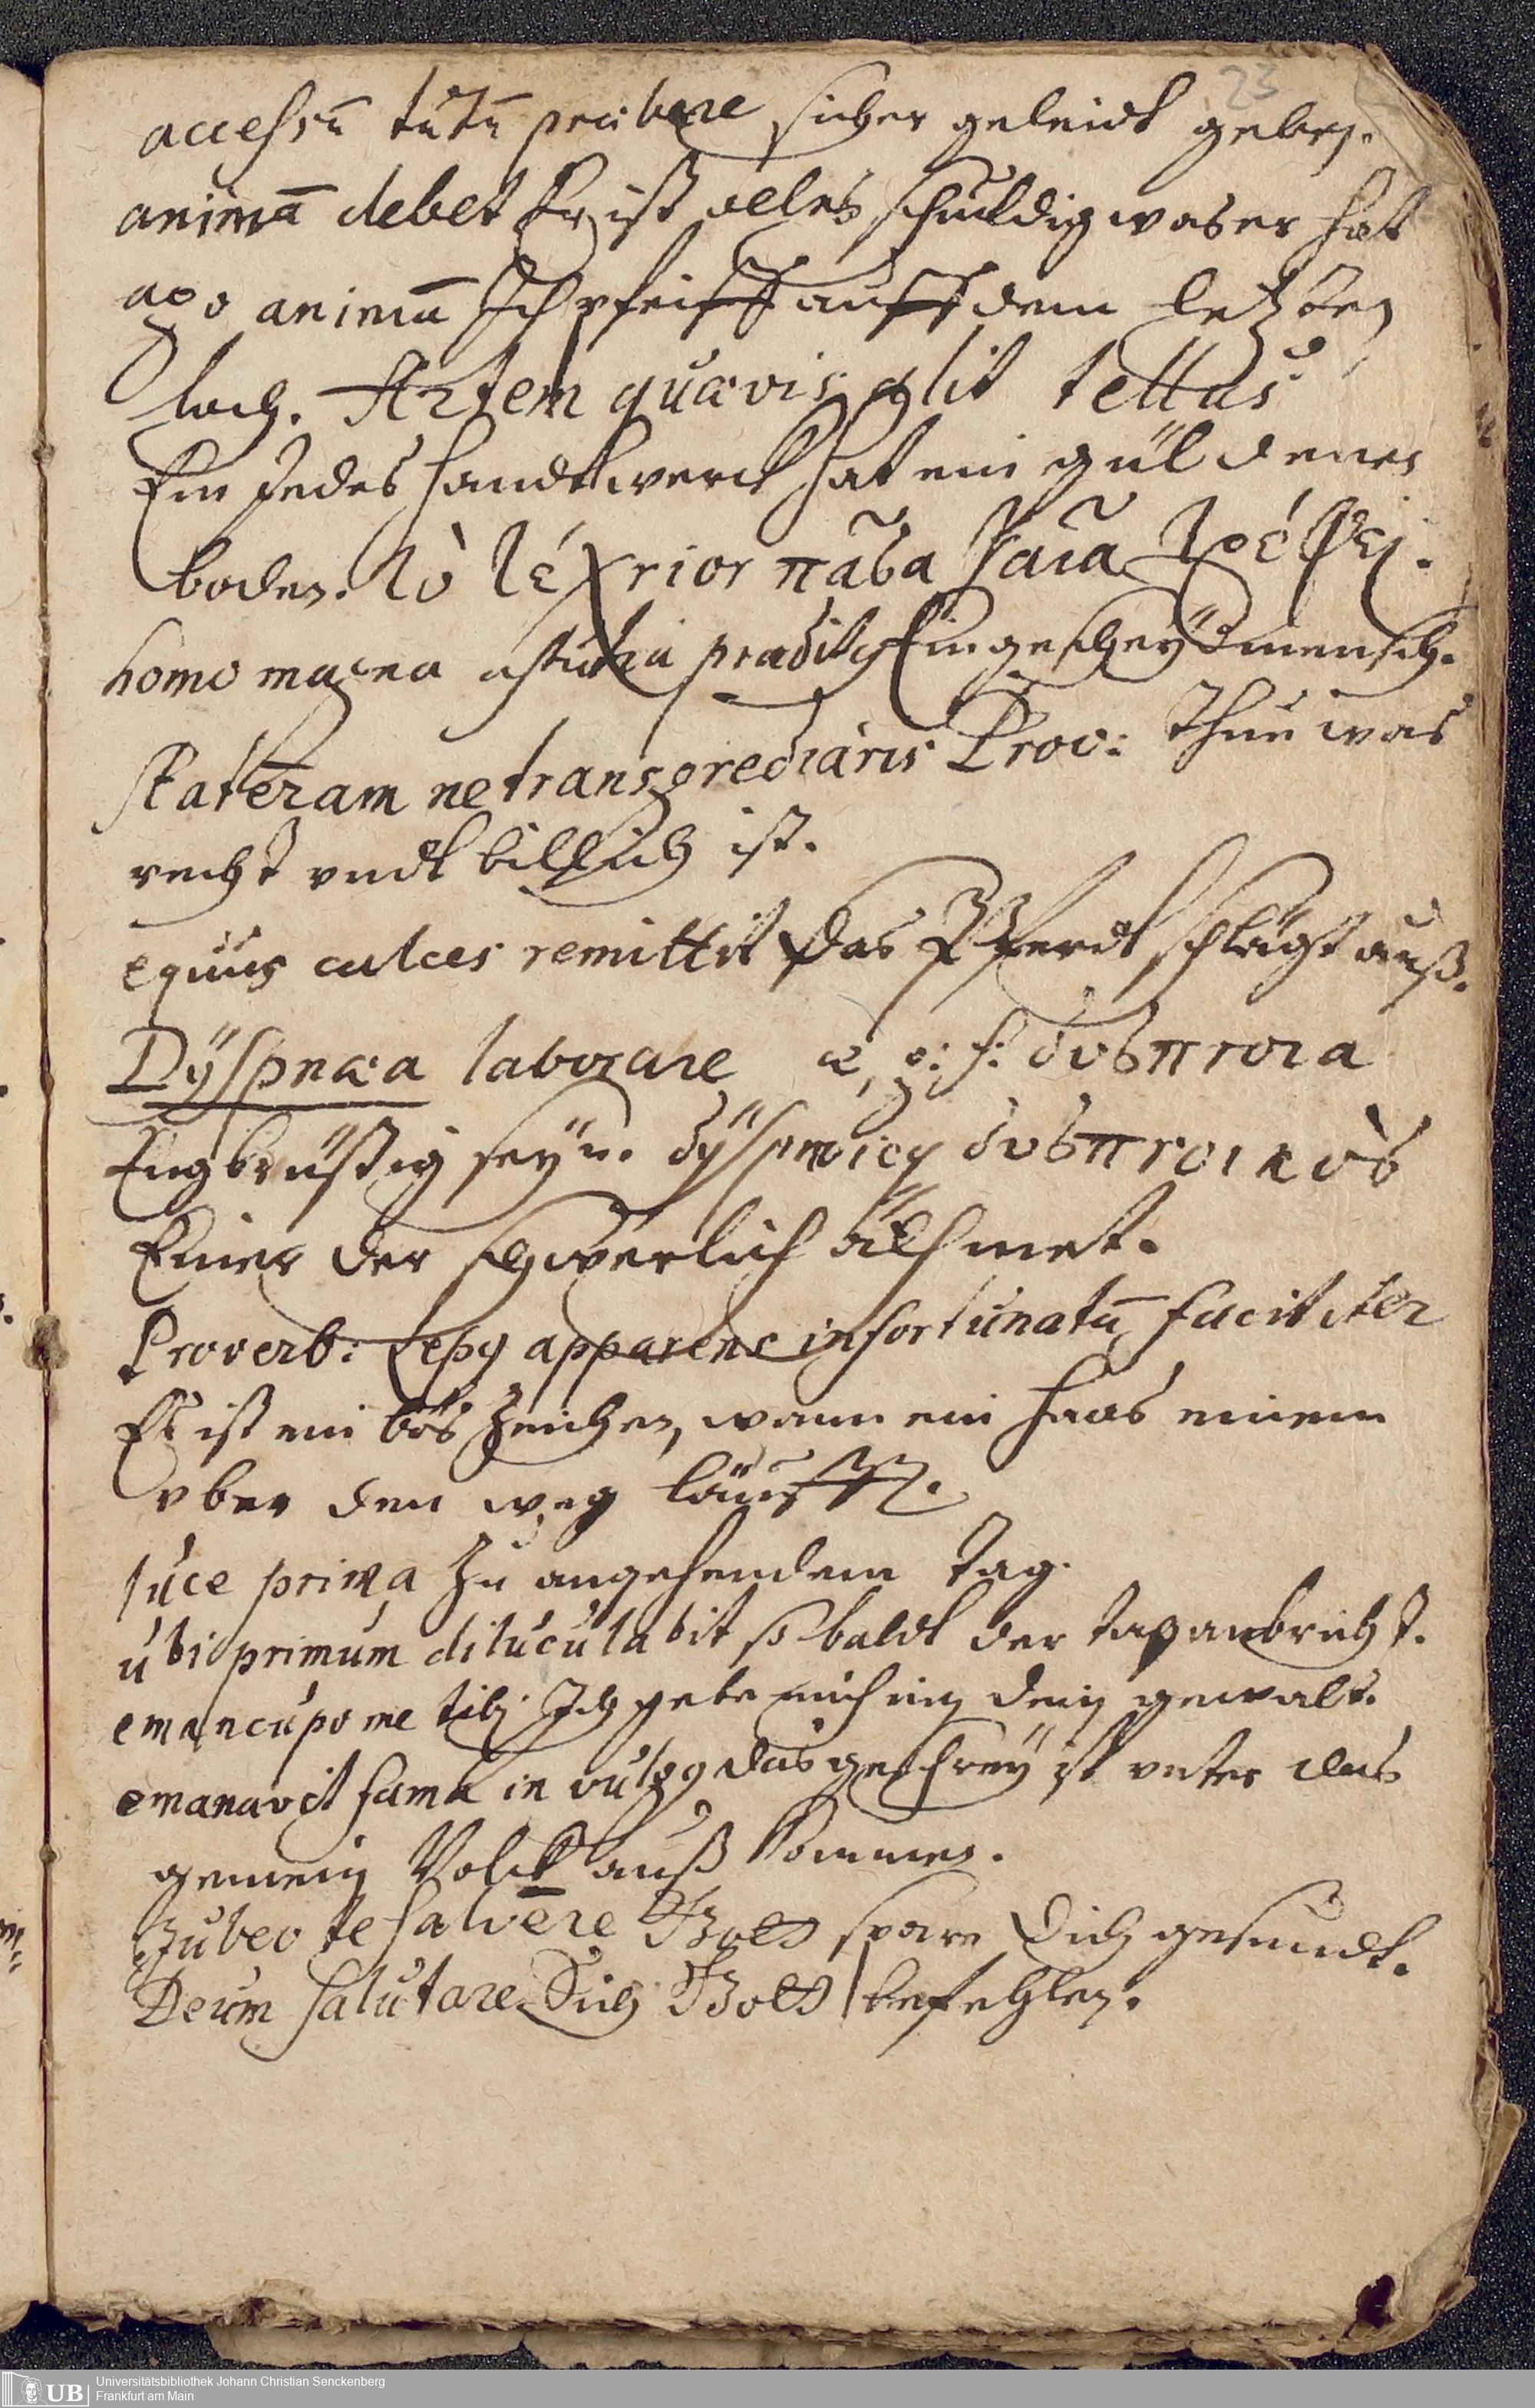 23
accessū tutū praebere sicher geleidt geben.
animā debet Er ist alles schuldig was er hat
ago animā Ich pfeiff auff dem letzten
loch. Artem quaevis alit tellus
Ein Jedes handtwerck hat ein güldenen
boden. τὸ τέχνιον πᾶσα γαῖα τρέφει.
homo magna astutia praeditus Ein gescheyd mensch.
Stateram ne transgrediaris Prov: Thue was
recht undt billich ist.
equus calces remittit Das Pferdt schlägt auß.
Dÿspnaea laborare ae, g: f: δυσπνοια
Engbrüstig seyn. dÿspnoicus δυσπνοικὸς
Einer der schwerlich äthmet.
Proverb: Lepus apparens infortunatū facit iter
Es ist ein bös Zeichen, wann ein haas einem
vber den weg läufft.
luce prima Zu angehendem Tag.
ubi primum diluculabit so baldt der tag anbricht.
emancupo me tibi Ich gebe mich in dein gewalt.
emanavit fama in vulgus das geschrey ist unter das
gemein Volck auß kommen.
Jubeo te salvēre Gott spare Dich gesundt.
Deum salutare Dich Gott befehlen.
UB
Universitätsbibliothek Johann Christian Senckenberg
Frankfurt am Main